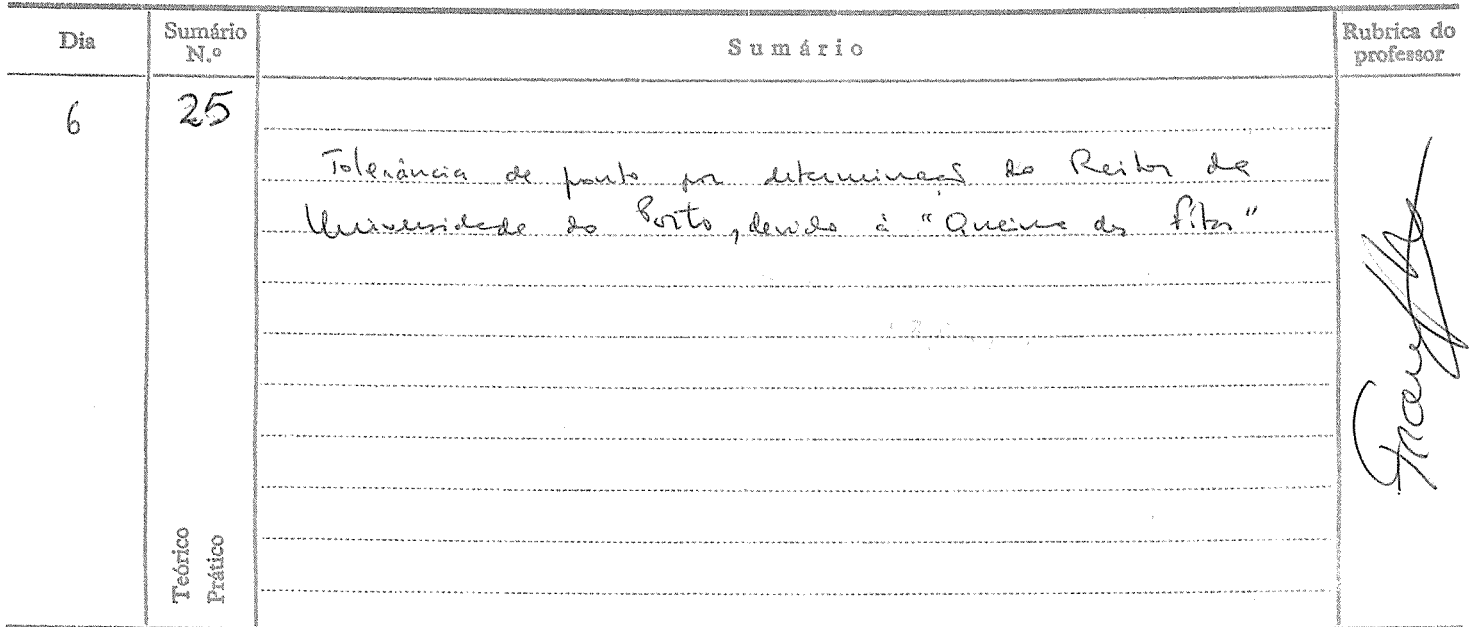 Dia
Sumário N.º
Sumário
Rubrica do professor
6
25
Tolerância de ponto por determinação do Reitor da
Universidade do Porto, devido à "Queima das Fitas"
Teórico
Prático